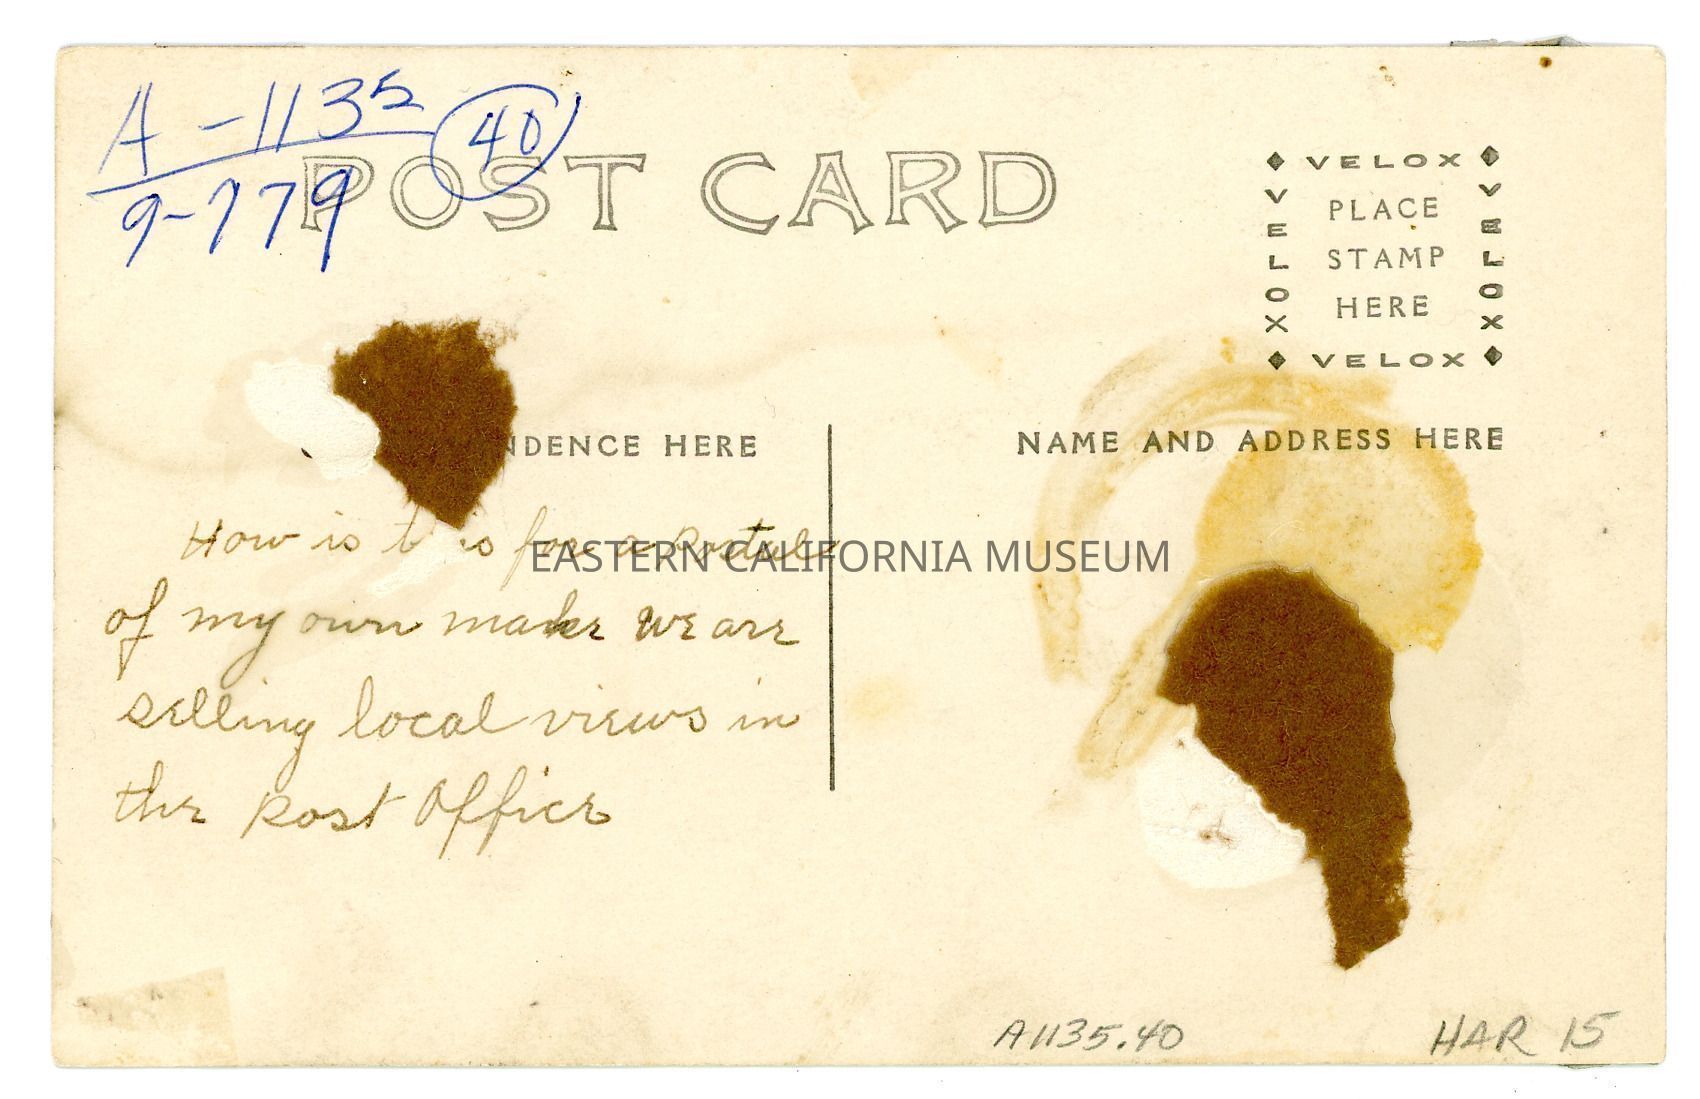 A-1135 (40)
9-779
POST CARD
VELOX
VELOX
VELOX
PLACE
STAMP
HERE
VELOX
NDENCE HERE
NAME AND ADDRESS HERE
How is for a Postal
EASTERN CALIFORNIA MUSEUM
of my own make we are
selling local views in
the Post Office
A1135.40
HAR 15